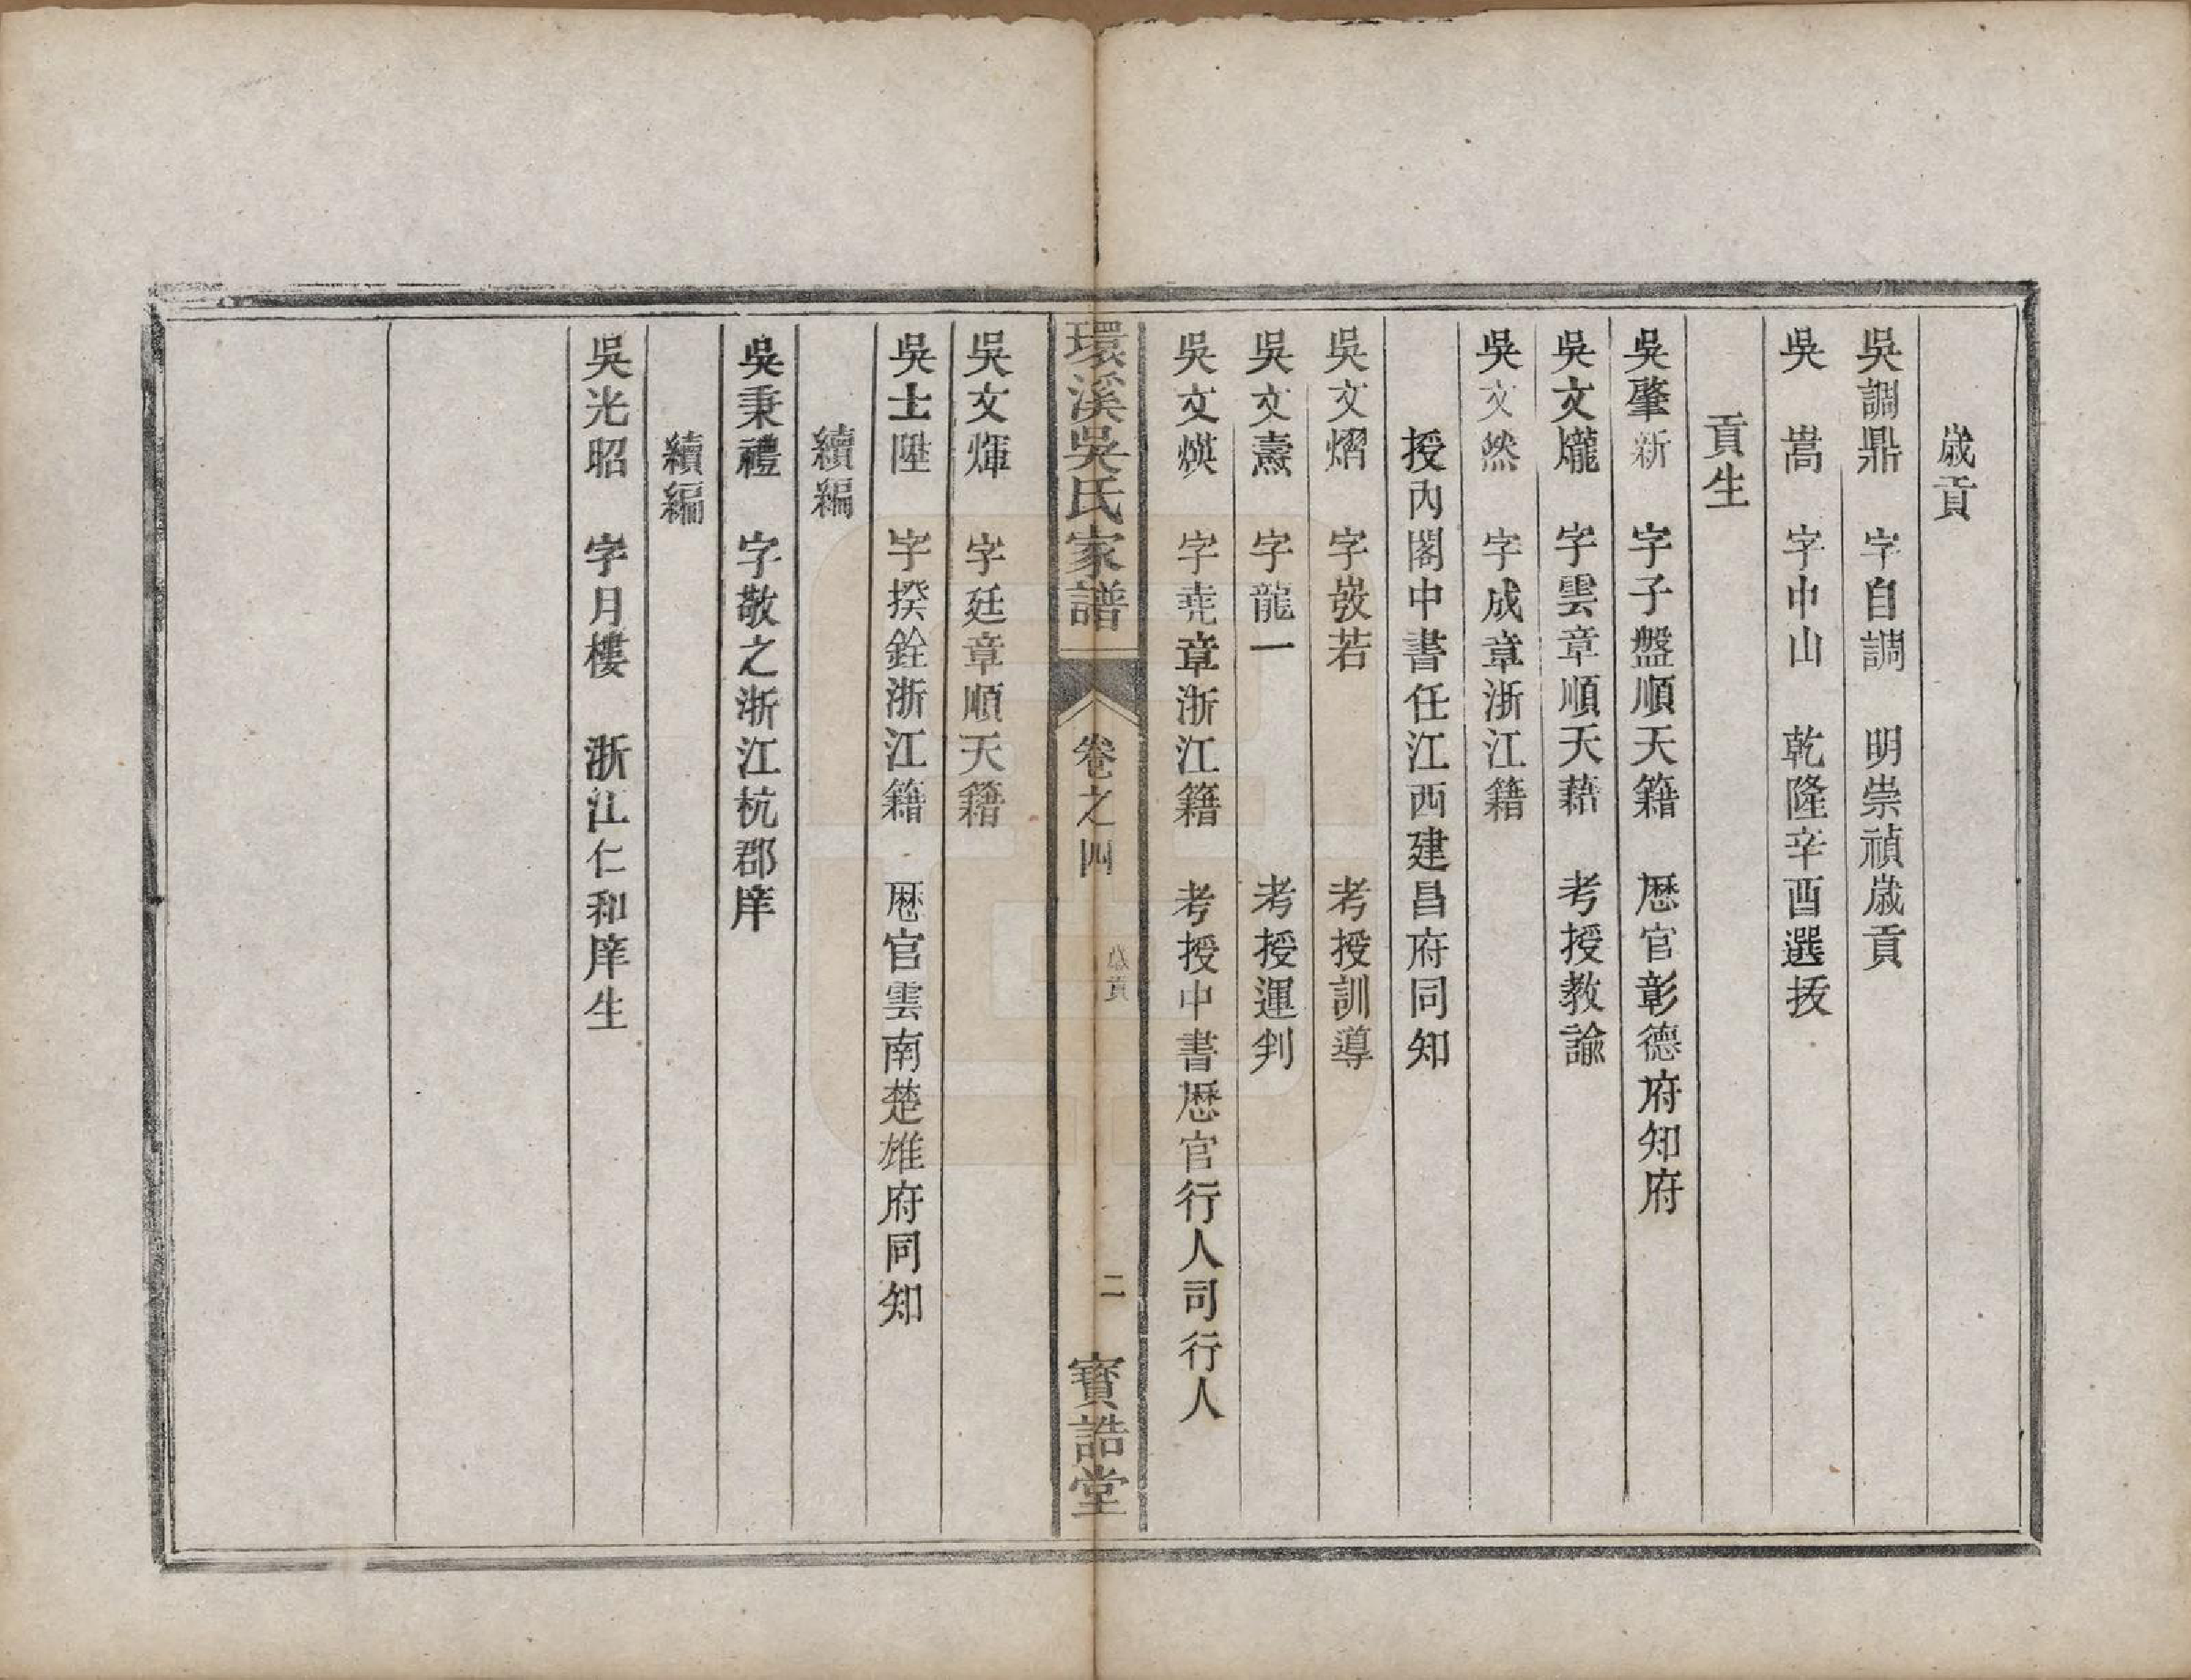 歲貢
吳調鼎　字自調　明崇禎歲貢
吳　嵩　字中山　乾隆辛酉選拔
貢生
吳肇新　字子盤順天籍　歷官彰德府知府
吳文爖　字雲章順天藉　考授教諭
吳文然　字成章浙江籍
授內閣中書任江西建昌府同知
吳文熠　字敳若　考授訓導
吳文燾　字龍一　考授運判
吳文煐　字堯章浙江籍　考授中書歷官行人司行人
環溪吳氏家譜
卷之四
二
寶誥堂
吳文煇　字廷章順天籍
吳士陞　字揆銓浙江籍　歷官雲南楚雄府同知
續編
吳秉禮　字敬之浙江杭郡庠
續編
吳光昭　字月樓　浙江仁和庠生